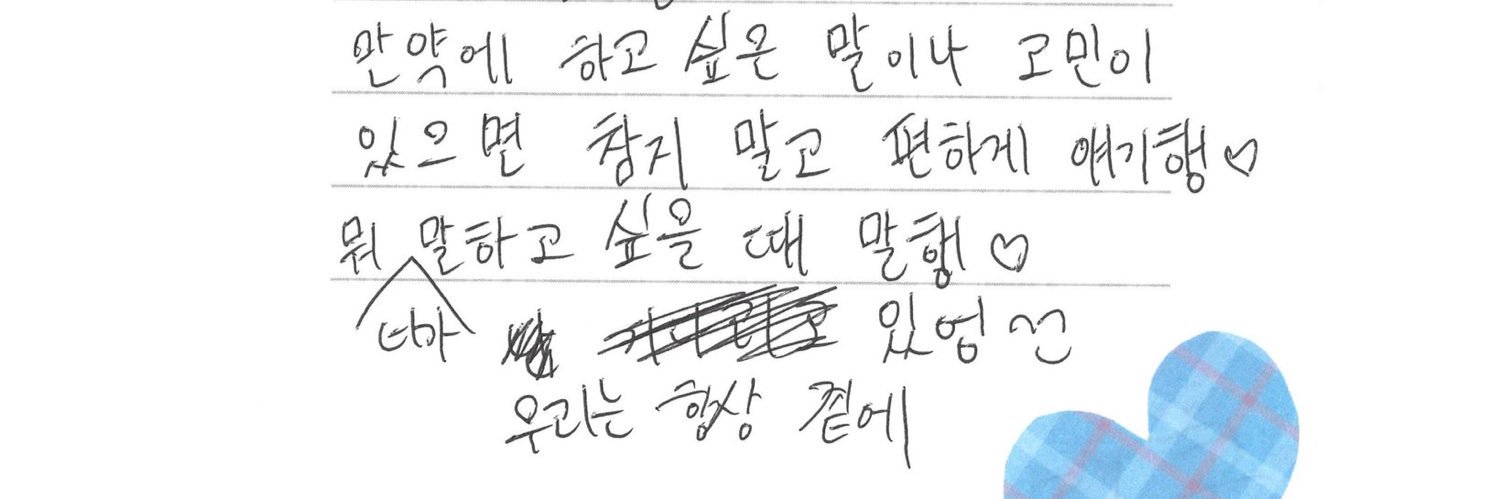 만약에 하고 싶은 말이나 고민이
있으면 참지 말고 편하게 얘기행♡
뭐 말하고 싶을 때 말행♡
너가
있엉
우리는 항상 곁에